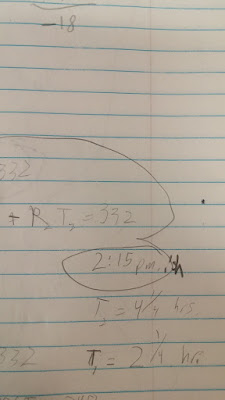 -18
332
+ R₂T₂ = 332
2:15 p.m.
T₂ = 4 1/4 hrs.
332 T₁ = 2 1/4 hrs.